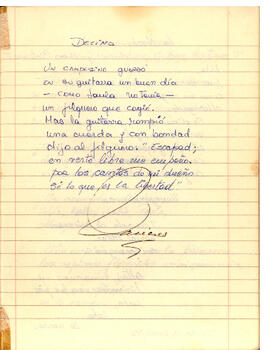 Decima
Un campesino guardó
en su guitarra un buen día
- como jaula no tenía -
un jilguero que cogió.
Mas la guitarra rompió
una cuerda y con bondad
dijo al jilguero: "Escapad;
en verte libre me empeño.
por los cantos de mi dueño
sé lo que es la libertad"